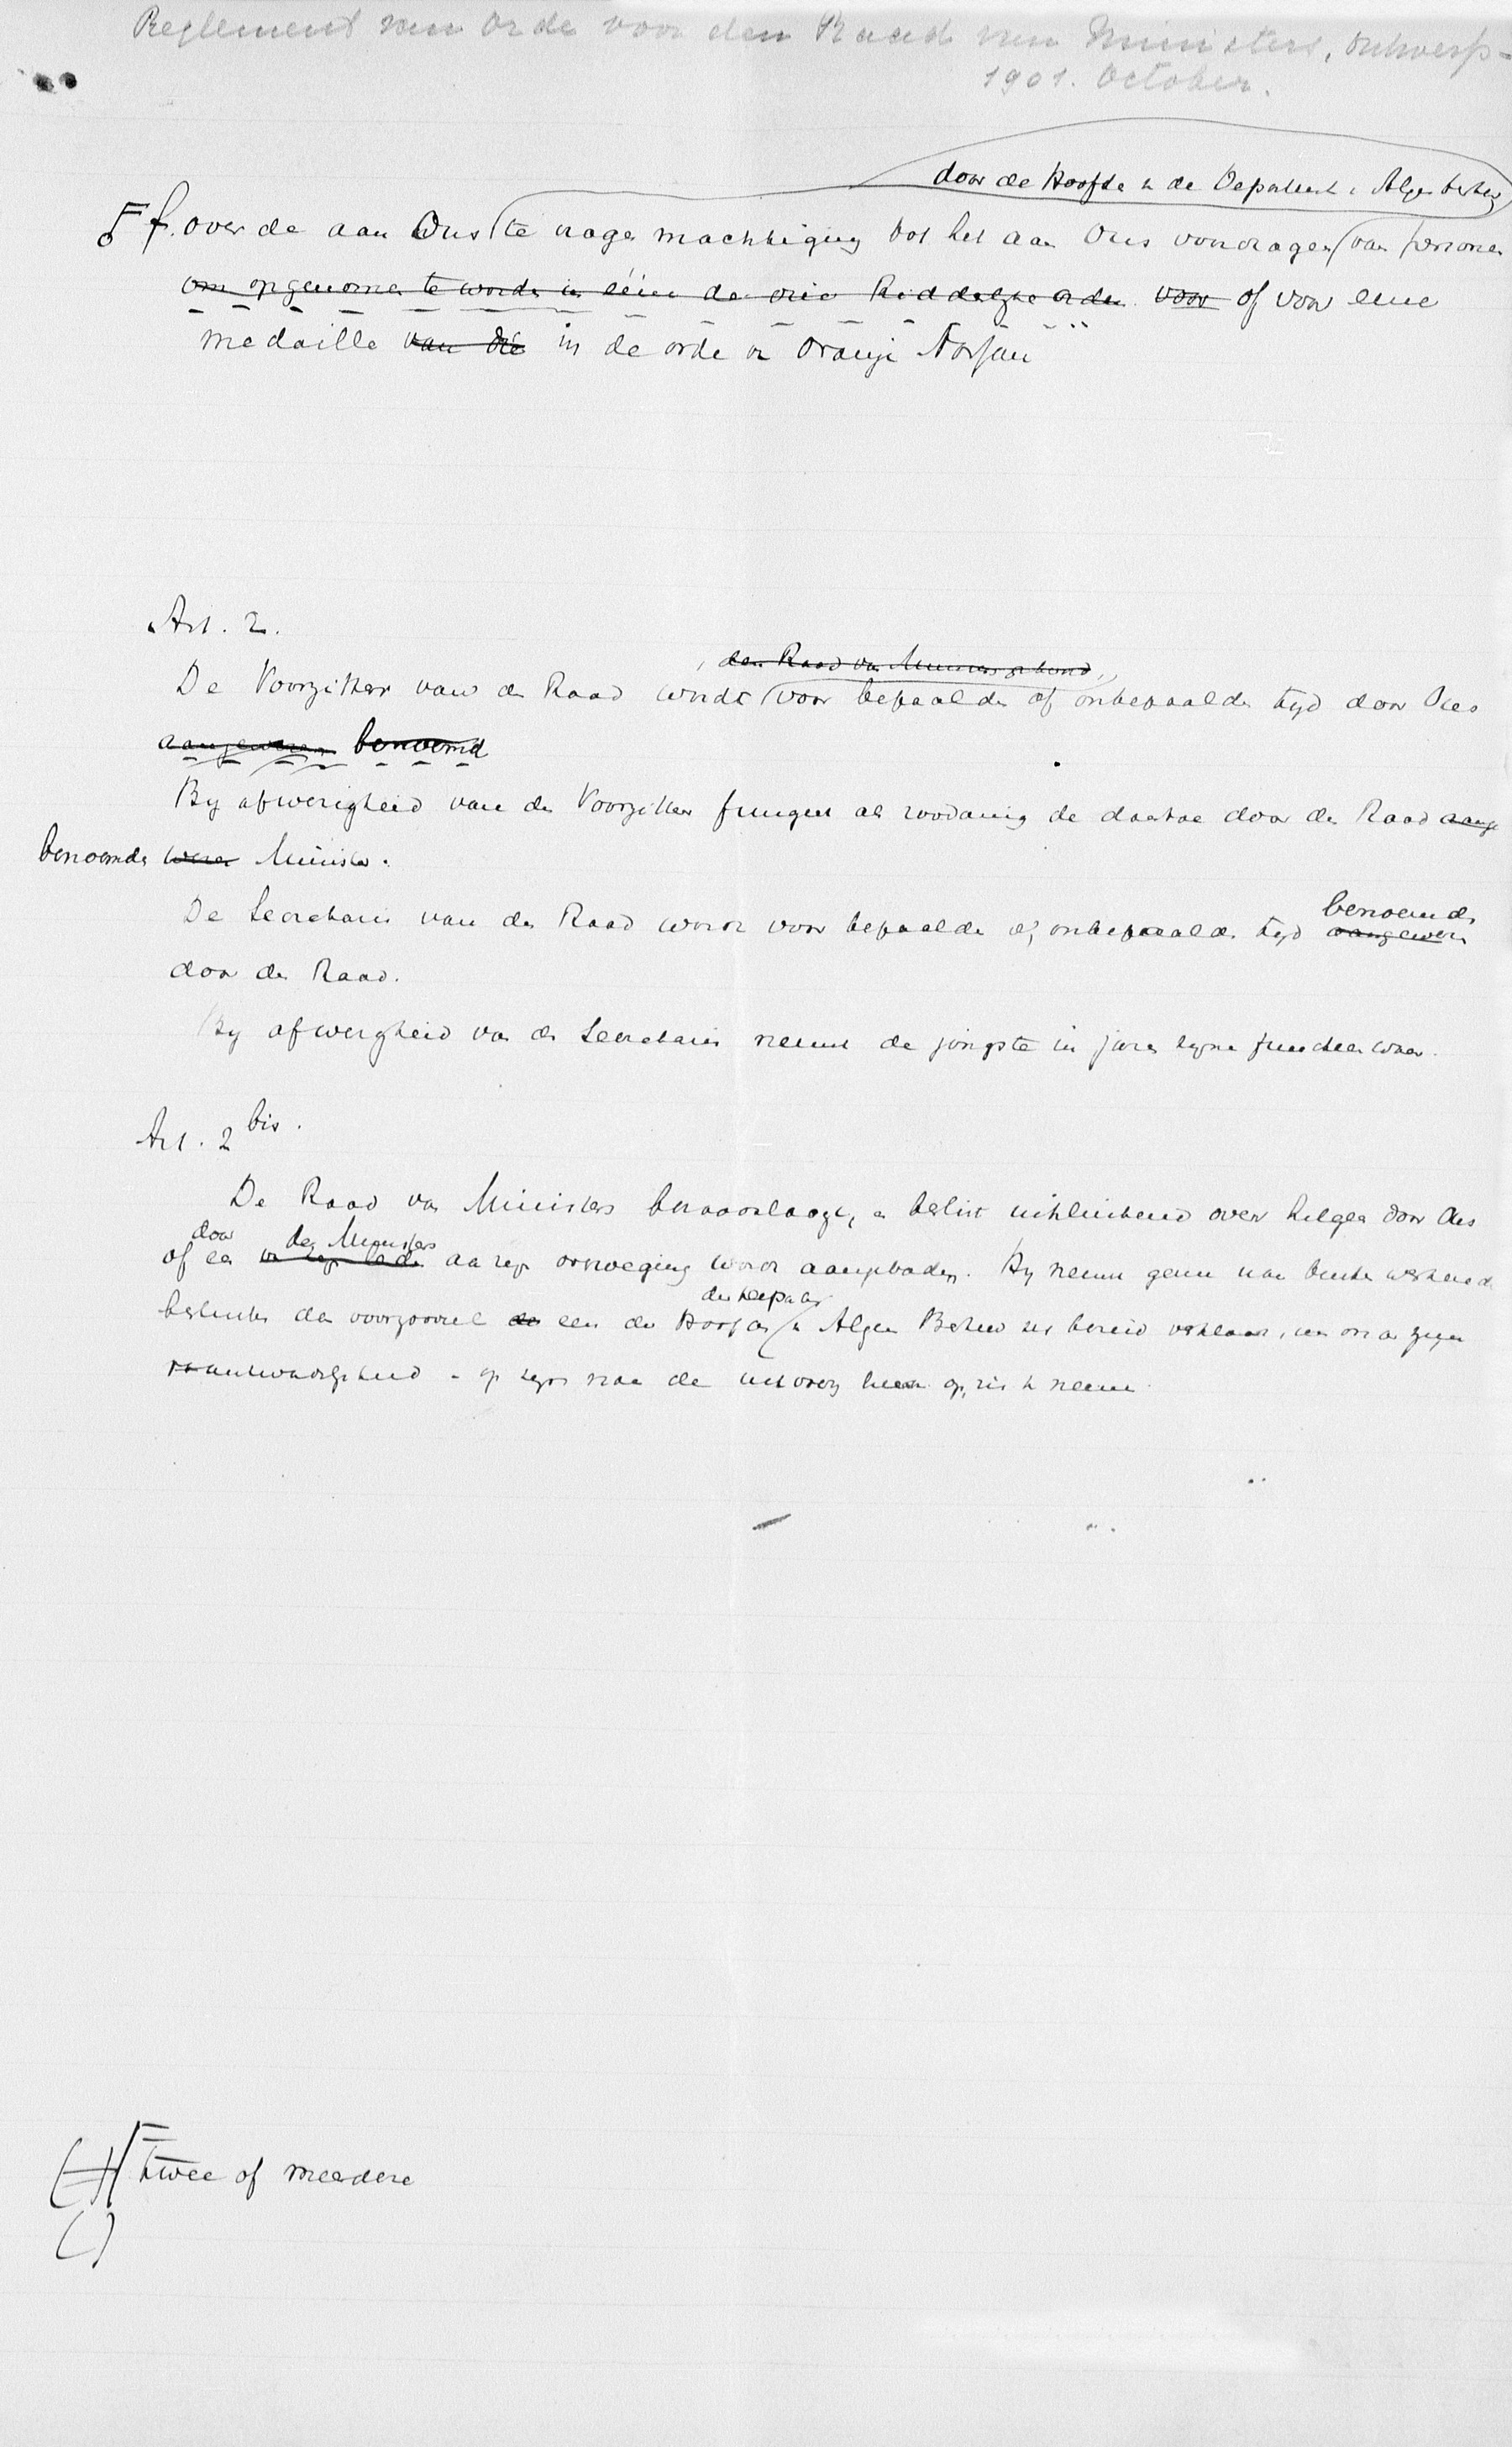 Reglement van Orde voor den Raad van Ministers, Ontwerp-
1901. October.
door de Hoofde v. de Departement v. Algn beheer
f. over de aan Ons te vrage machtiging tot het aan Ons voordragen van personen
om opgenomen te worden in één der drie Ridderlijke orden voor of voor eene
medaille van die in de orde v. Oranje Nassau
Art. 2.
den Raad van Ministers gehoord,
De Voorzitter van den Raad wordt voor bepaalden of onbepaalden tyd door Ons
aangewezen benoemd
By afwezigheid van den Voorzitter fungeert als zoodanig de daartoe door den Raad aange
benoemde weze Minister.
benoemd
De Secretaris van den Raad wordt voor bepaalde of onbepaalde tyd aangewezen
door den Raad.
By afwezigheid van de Secretaris neemt de jongste in jaren zyne functien waar.
Art. 2 bis.
De Raad van Ministers beraadslaagt, en beslist uitsluitend over hetgeen door Ons
door der Ministers
of een aan zyn overweging wordt aangeboden. Hy neemt geene naar buiten werkende
besluiten dan voorzooveel de een der Hoofden v. Algem Beheer zich bereid verklaart, om onder zyne
verantwoordelykheid op zyn de uitvoering op zich te nemen.
twee of meerdere